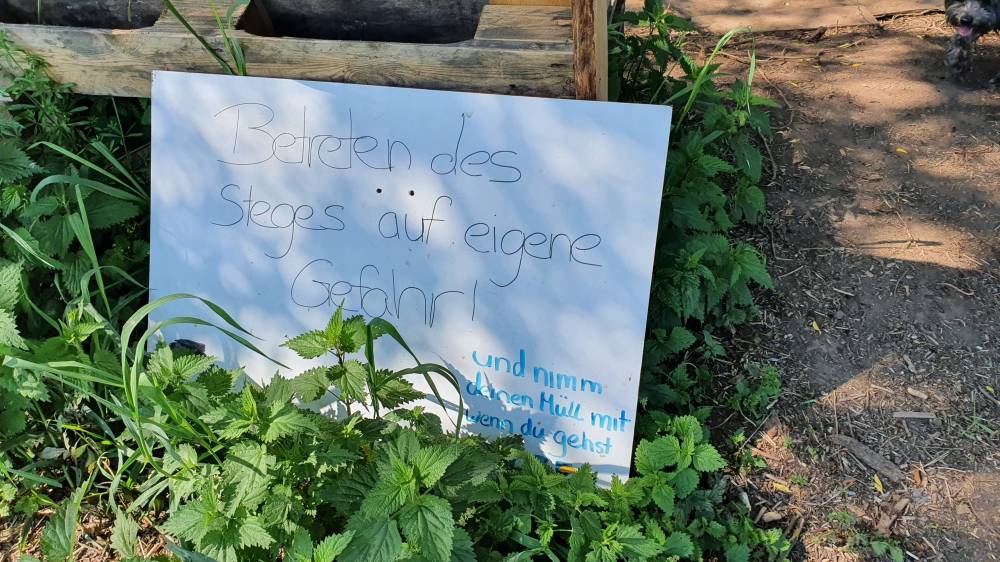 Betreten des
Steges auf eigene
Gefahr!
und nimm
deinen Müll mit
wenn du gehst